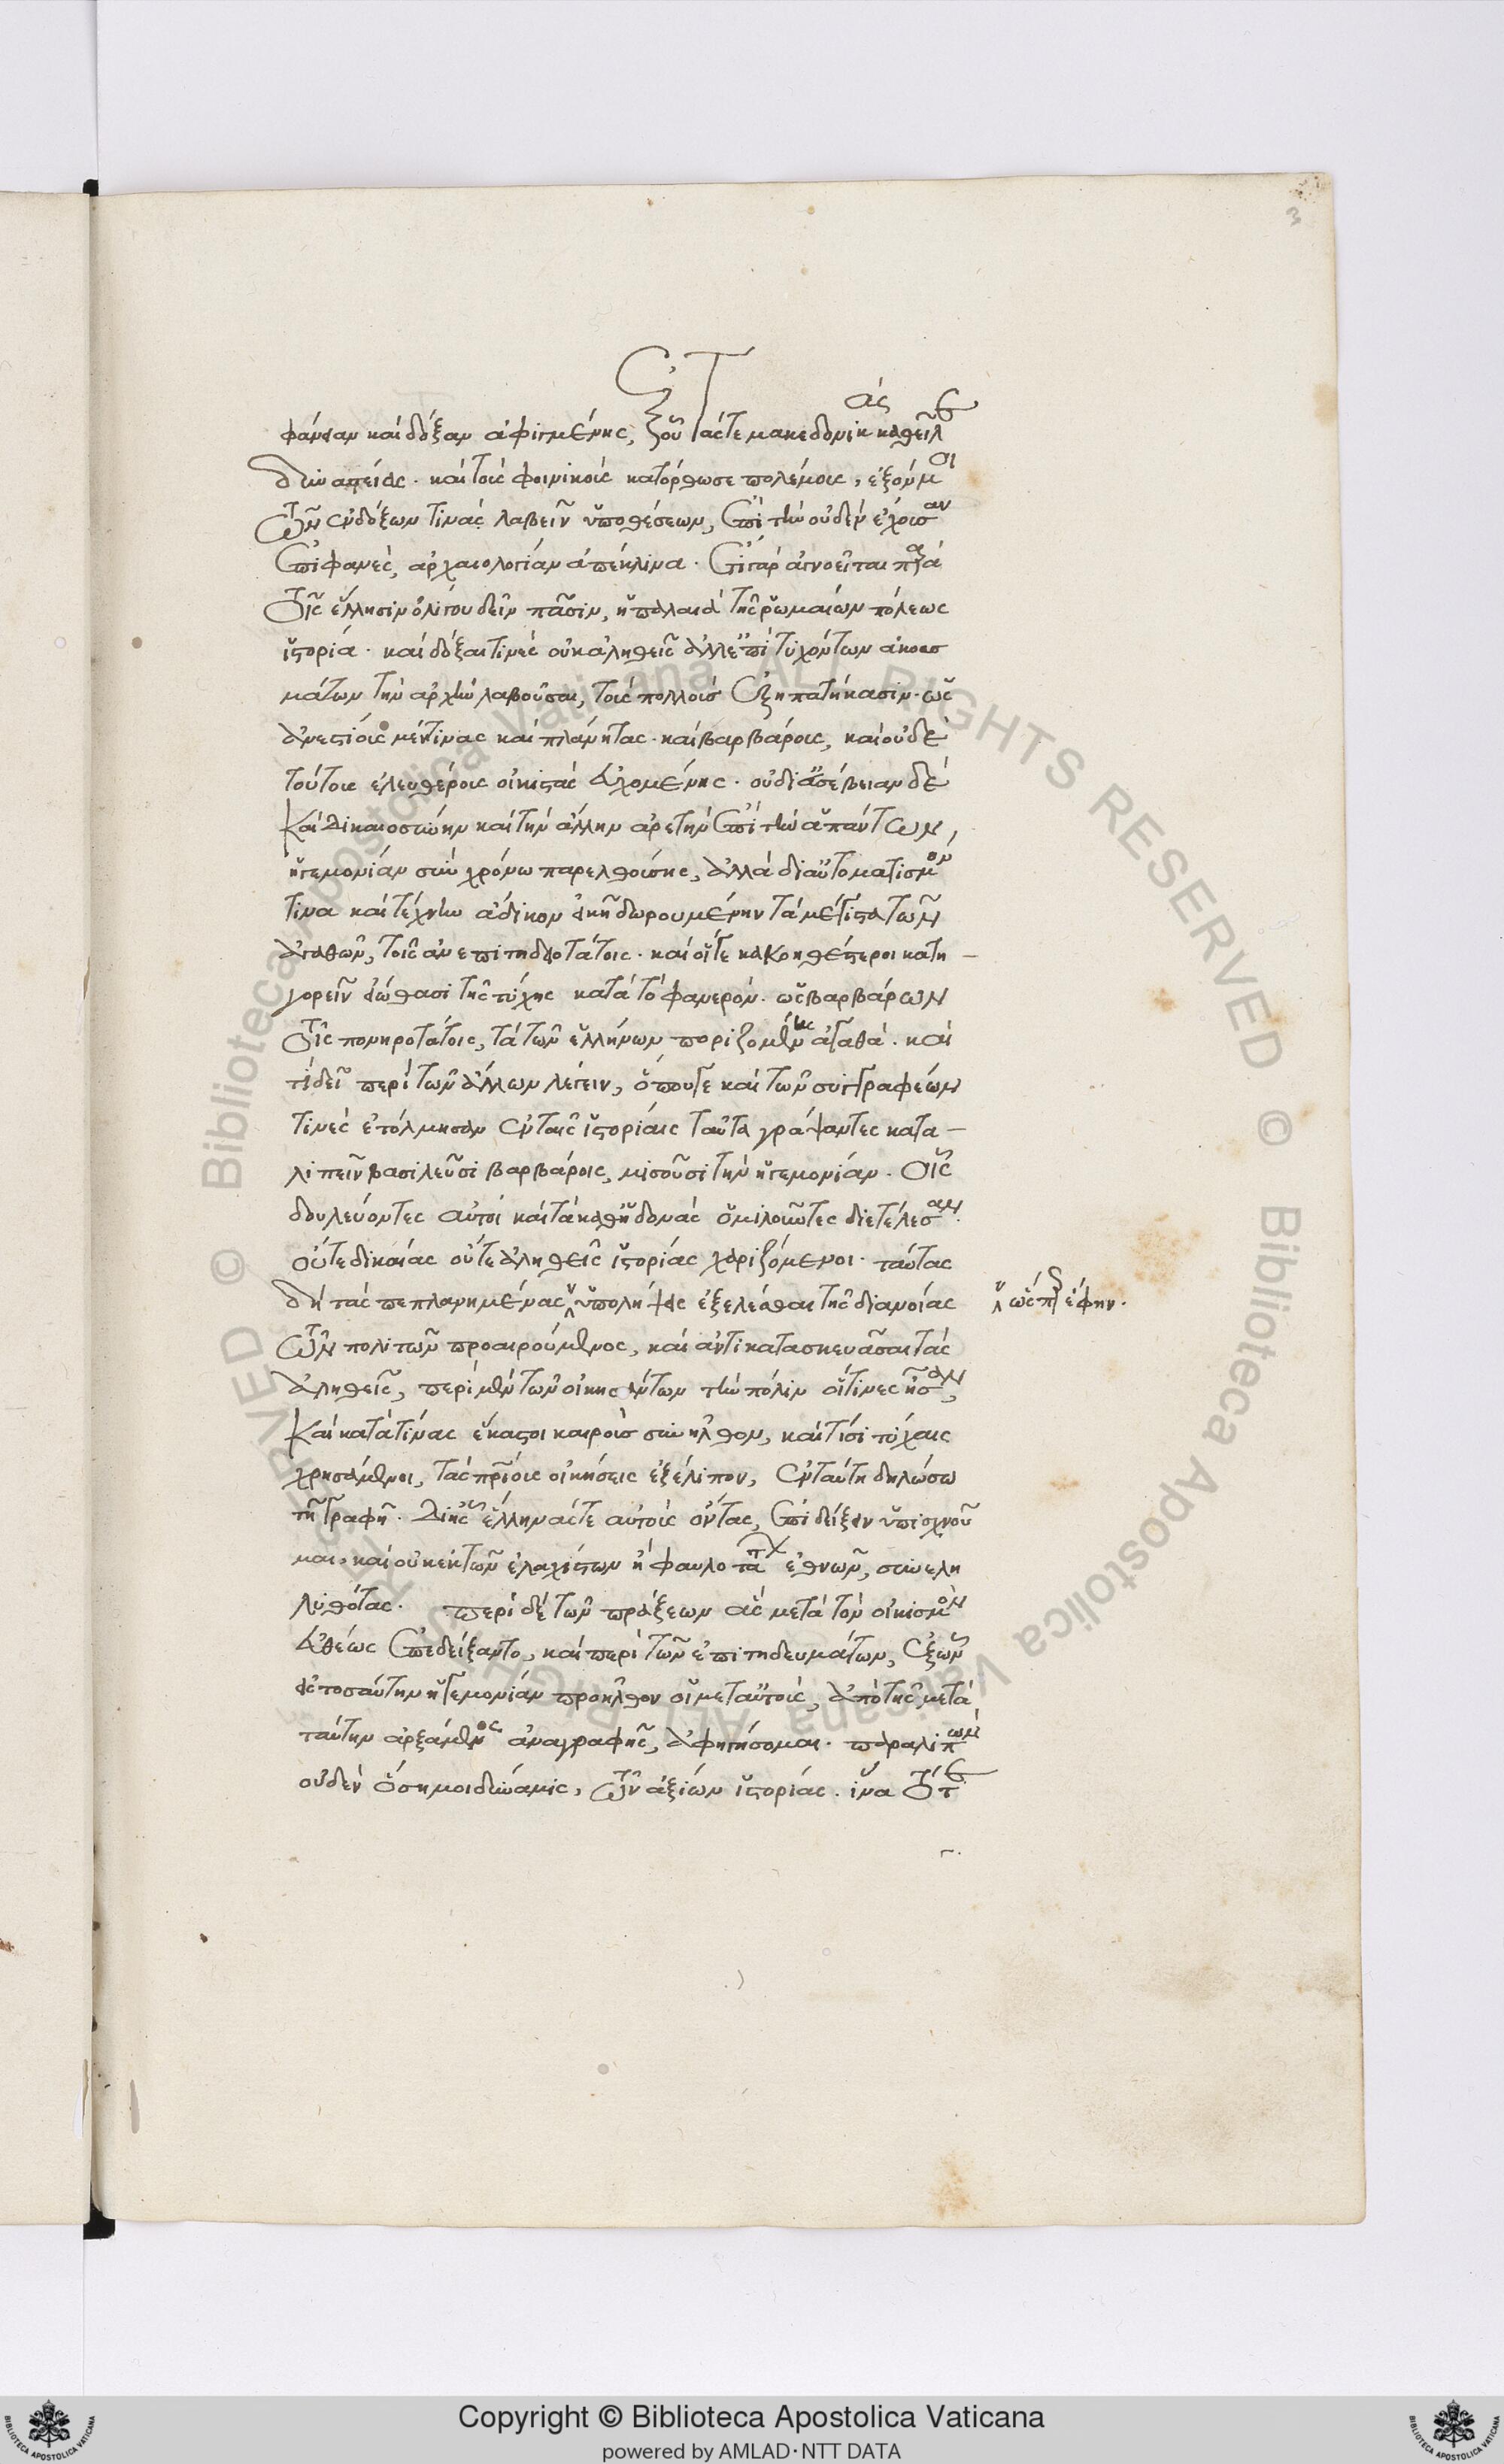 3
φάνειαν καὶ δόξαν ἀφιγμένης, ἐξοῦ τάς τε μακεδονικὰς καθεῖλε
δυναστείας. καὶ τοὺς φοινικοὺς κατόρθωσε πολέμους, ἐξόν μοι
τῶν ἐνδόξων τινὰς λαβεῖν ὑποθέσεων, ἐπὶ τὴν οὐδὲν ἔχουσαν
ἐπιφανὲς, ἀρχαιολογίαν ἀπέκλινα. ἔτι γὰρ ἀγνοεῖται παρὰ
τοῖς ἕλλησιν ὀλίγου δεῖν πᾶσιν, ἡ παλαιὰ τῆς ῥωμαίων πόλεως
ἱστορία. καὶ δόξαι τινὲς οὐκ ἀληθεῖς ἀλλ' ἐπὶ τυχόντων ἀκουσ
μάτων τὴν ἀρχὴν λαβοῦσαι, τοὺς πολλοὺς ἐξηπατήκασιν. ὡς
ἀνεστίους μέν τινας καὶ πλάνητας. καὶ βαρβάρους, καὶ οὐδὲ
τούτους ἐλευθέρους οἰκιστὰς εὐχομένης. οὐ δι' ἀσέβειαν δὲ
καὶ δικαιοσύνην καὶ τὴν ἄλλην ἀρετὴν ἐπὶ τὴν ἁπάντων,
ἡγεμονίαν σὺν χρόνω παρελθούσης, ἀλλὰ δι' αὐτοματισμόν
τινα καὶ τύχην ἄδικον εἰκῆ δωρουμένην τὰ μέγιστα τῶν
ἀγαθῶν, τοῖς ἀνεπιτηδειοτάτοις. καὶ οἵ γε κακοηθέστεροι κατη
γορεῖν εἰώθασι τῆς τύχης κατὰ τὸ φανερόν. ὡς βαρβάρων
τοῖς πονηροτάτοις, τὰ τῶν ἑλλήνων ποριζομένης ἀγαθά. καὶ
τί δεῖ περὶ τῶν ἄλλων λέγειν, ὅπου γε καὶ τῶν συγγραφέων
τινὲς ἐτόλμησαν ἐν ταῖς ἱστορίαις ταῦτα γράψαντες κατα
λιπεῖν βασιλεῦσι βαρβάροις, μισοῦσι τὴν ἡγεμονίαν. οἷς
δουλεύοντες αὐτοὶ καὶ τὰ καθ' ἡδονὰς ὁμιλοῦντες διετέλεσαν.
οὔτε δικαίας οὔτε ἀληθεῖς ἱστορίας χαριζόμενοι. ταύτας
δὴ τὰς πεπλανημένας ὑπολήψεις ἐξελέσθαι τῆς διανοίας
ὥσπερ ἔφην.
τῶν πολιτῶν προαιρούμενος, καὶ ἀντικατασκευᾶσαι τὰς
ἀληθεῖς, περὶ μὲν τῶν οἰκησάντων τὴν πόλιν οἵτινες ἦσαν,
καὶ κατὰ τίνας ἕκαστοι καιροὺς συνῆλθον, καὶ τίσι τύχαις
χρησάμενοι, τὰς πατρίους οἰκήσεις ἐξέλιπον, ἐν ταύτη δηλώσω
τῆ γραφῆ. δι' ἧς ἕλληνάς τε αὐτοὺς ὄντας, ἐπιδείξειν ὑπισχνοῦ
μαι. καὶ οὐκ ἐκ τῶν ἐλαχίστων ἢ φαυλοτάτων ἐθνῶν, συνελη
λυθότας. περὶ δὲ τῶν πράξεων ἃς μετὰ τὸν οἰκισμὸν
εὐθέως ἐπεδείξαντο, καὶ περὶ τῶν ἐπιτηδευμάτων, ἐξ ὧν
εἰς τοσαύτην ἡγεμονίαν προῆλθον οἱ μετ' αὐτοὺς, ἀπὸ τῆς μετὰ
ταύτην ἀρξάμενος ἀναγραφῆς, ἀφηγήσομαι. παραλιπὼν
οὐδὲν ὅση μοι δύναμις, τῶν ἀξίων ἱστορίας. ἵνα τό τε
© Biblioteca Apostolica Vaticana ALL RIGHTS RESERVED
© Biblioteca Apostolica Vaticana ALL RIGHTS RESERVED
Copyright © Biblioteca Apostolica Vaticana
powered by AMLAD·NTT DATA